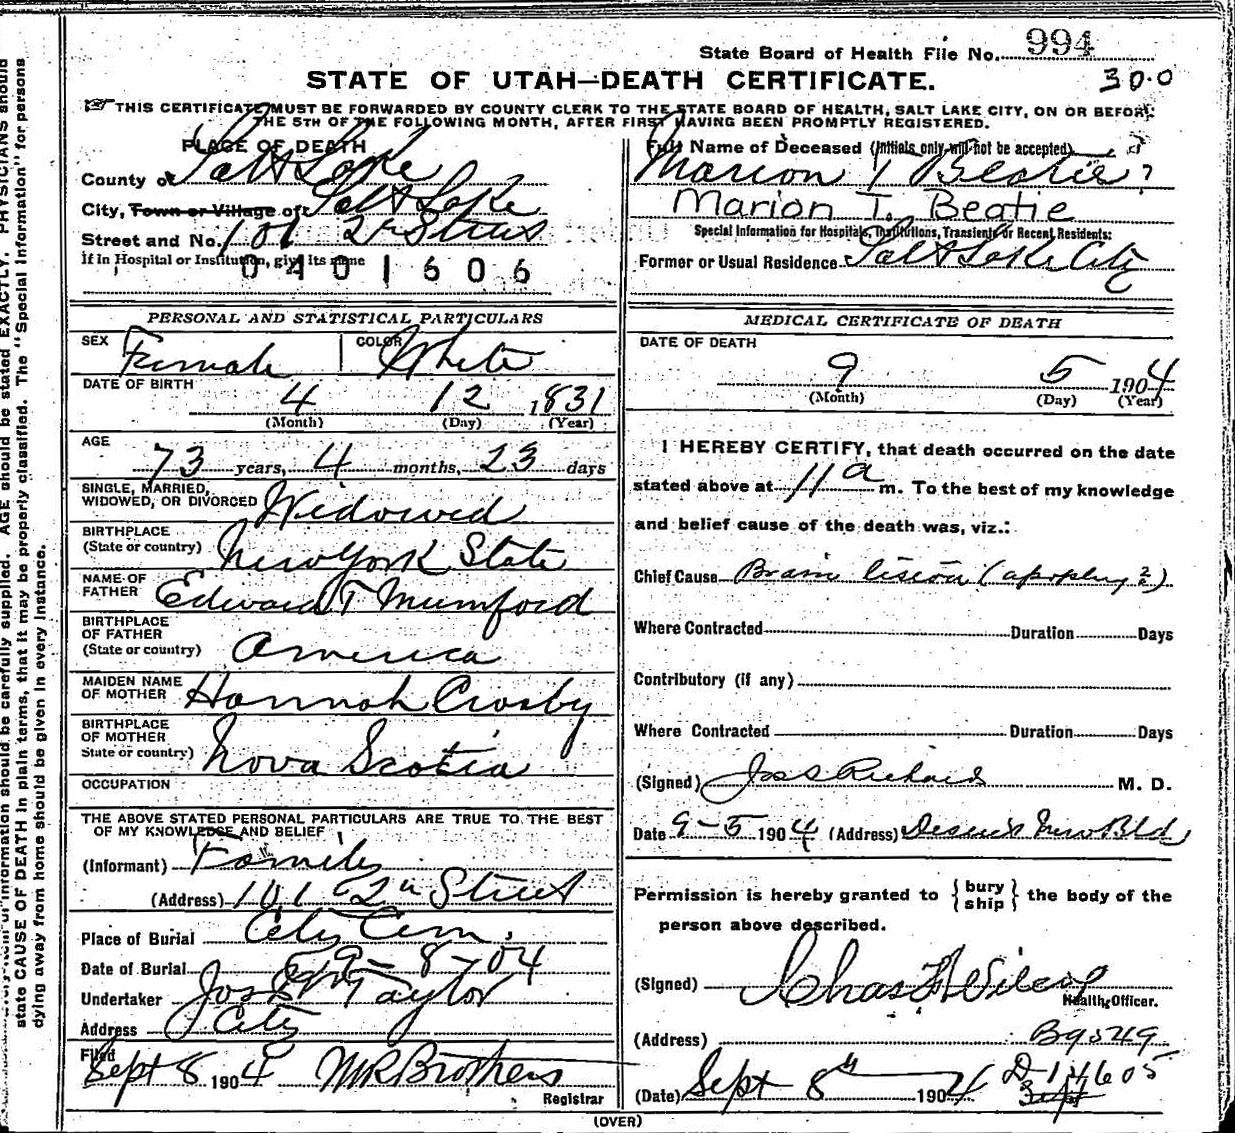 State Board of Health File No. 994
STATE OF UTAH—DEATH CERTIFICATE.
300
THIS CERTIFICATE MUST BE FORWARDED BY COUNTY CLERK TO THE STATE BOARD OF HEALTH, SALT LAKE CITY, ON OR BEFORE
THE 5TH OF THE FOLLOWING MONTH, AFTER FIRST HAVING BEEN PROMPTLY REGISTERED.
PLACE OF DEATH
County of Salt Lake
City, Town or Village of Salt Lake
Street and No. 101 2n Street
If in Hospital or Institution, give its name
0401606
Full Name of Deceased (Initials only will not be accepted)
Marion T Beatie ?
Marion T. Beatie
Special Information for Hospitals, Institutions, Transients or Recent Residents:
Former or Usual Residence Salt Lake City
PERSONAL AND STATISTICAL PARTICULARS
SEX Female COLOR White
DATE OF BIRTH
4 12 1831
(Month) (Day) (Year)
AGE
73 years, 4 months, 23 days
SINGLE, MARRIED,
WIDOWED, OR DIVORCED Widowed
BIRTHPLACE
(State or country) New York State
NAME OF
FATHER Edward T Mumford
BIRTHPLACE
OF FATHER
(State or country) America
MAIDEN NAME
OF MOTHER Hannah Crosby
BIRTHPLACE
OF MOTHER
State or country) Nova Scotia
OCCUPATION
THE ABOVE STATED PERSONAL PARTICULARS ARE TRUE TO THE BEST
OF MY KNOWLEDGE AND BELIEF
(Informant) Family
(Address) 101 2n Street
Place of Burial City Cem.
Date of Burial 9-8-04
Undertaker Jos Taylor
Address City
Filed
Sept 8 1904 Brothers
Registrar
MEDICAL CERTIFICATE OF DEATH
DATE OF DEATH
9 5 1904
(Month) (Day) (Year)
I HEREBY CERTIFY, that death occurred on the date
stated above at 11 a m. To the best of my knowledge
and belief cause of the death was, viz.:
Chief Cause Brain lesion (apoplexy ?)
Where Contracted Duration Days
Contributory (if any)
Where Contracted Duration Days
(Signed) Jos S Richards M. D.
Date 9-5 1904 (Address) Deseret News Bld
Permission is hereby granted to {bury
ship} the body of the
person above described.
(Signed) Chas Wilcox
Health Officer.
(Address) B9549
(Date) Sept 8th 1904 D-14605
(OVER)
state CAUSE OF DEATH in plain terms, that it may be properly classified. The "Special Information" for persons
dying away from home should be given in every instance.